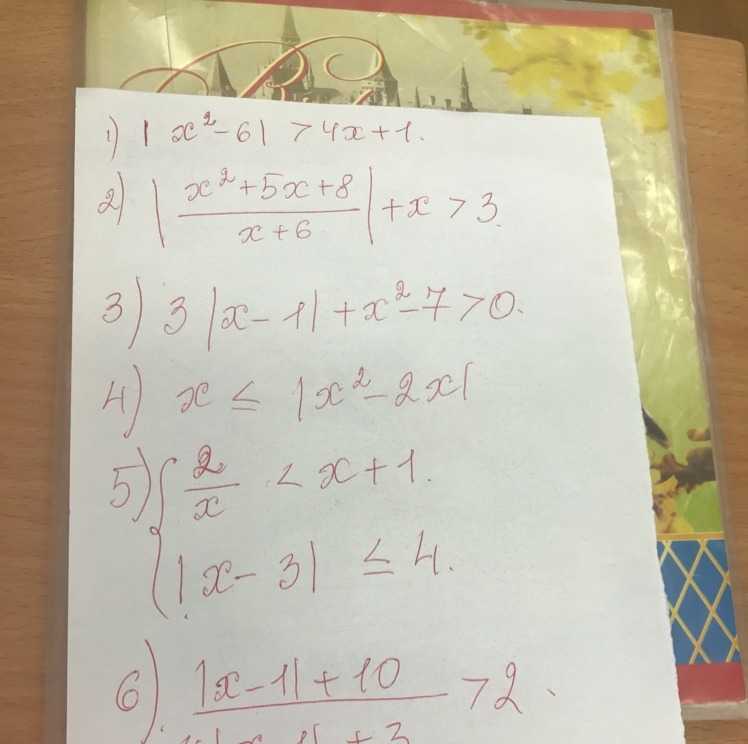 1) |x²-6| > 4x+1.
2) |(x²+5x+8)/(x+6)| + x > 3
3) 3|x-1| + x²-7 > 0.
4) x ≤ |x²-2x|
5) { 2/x < x+1.
|x-3| ≤ 4.
6) |x-1|+10 > 2.